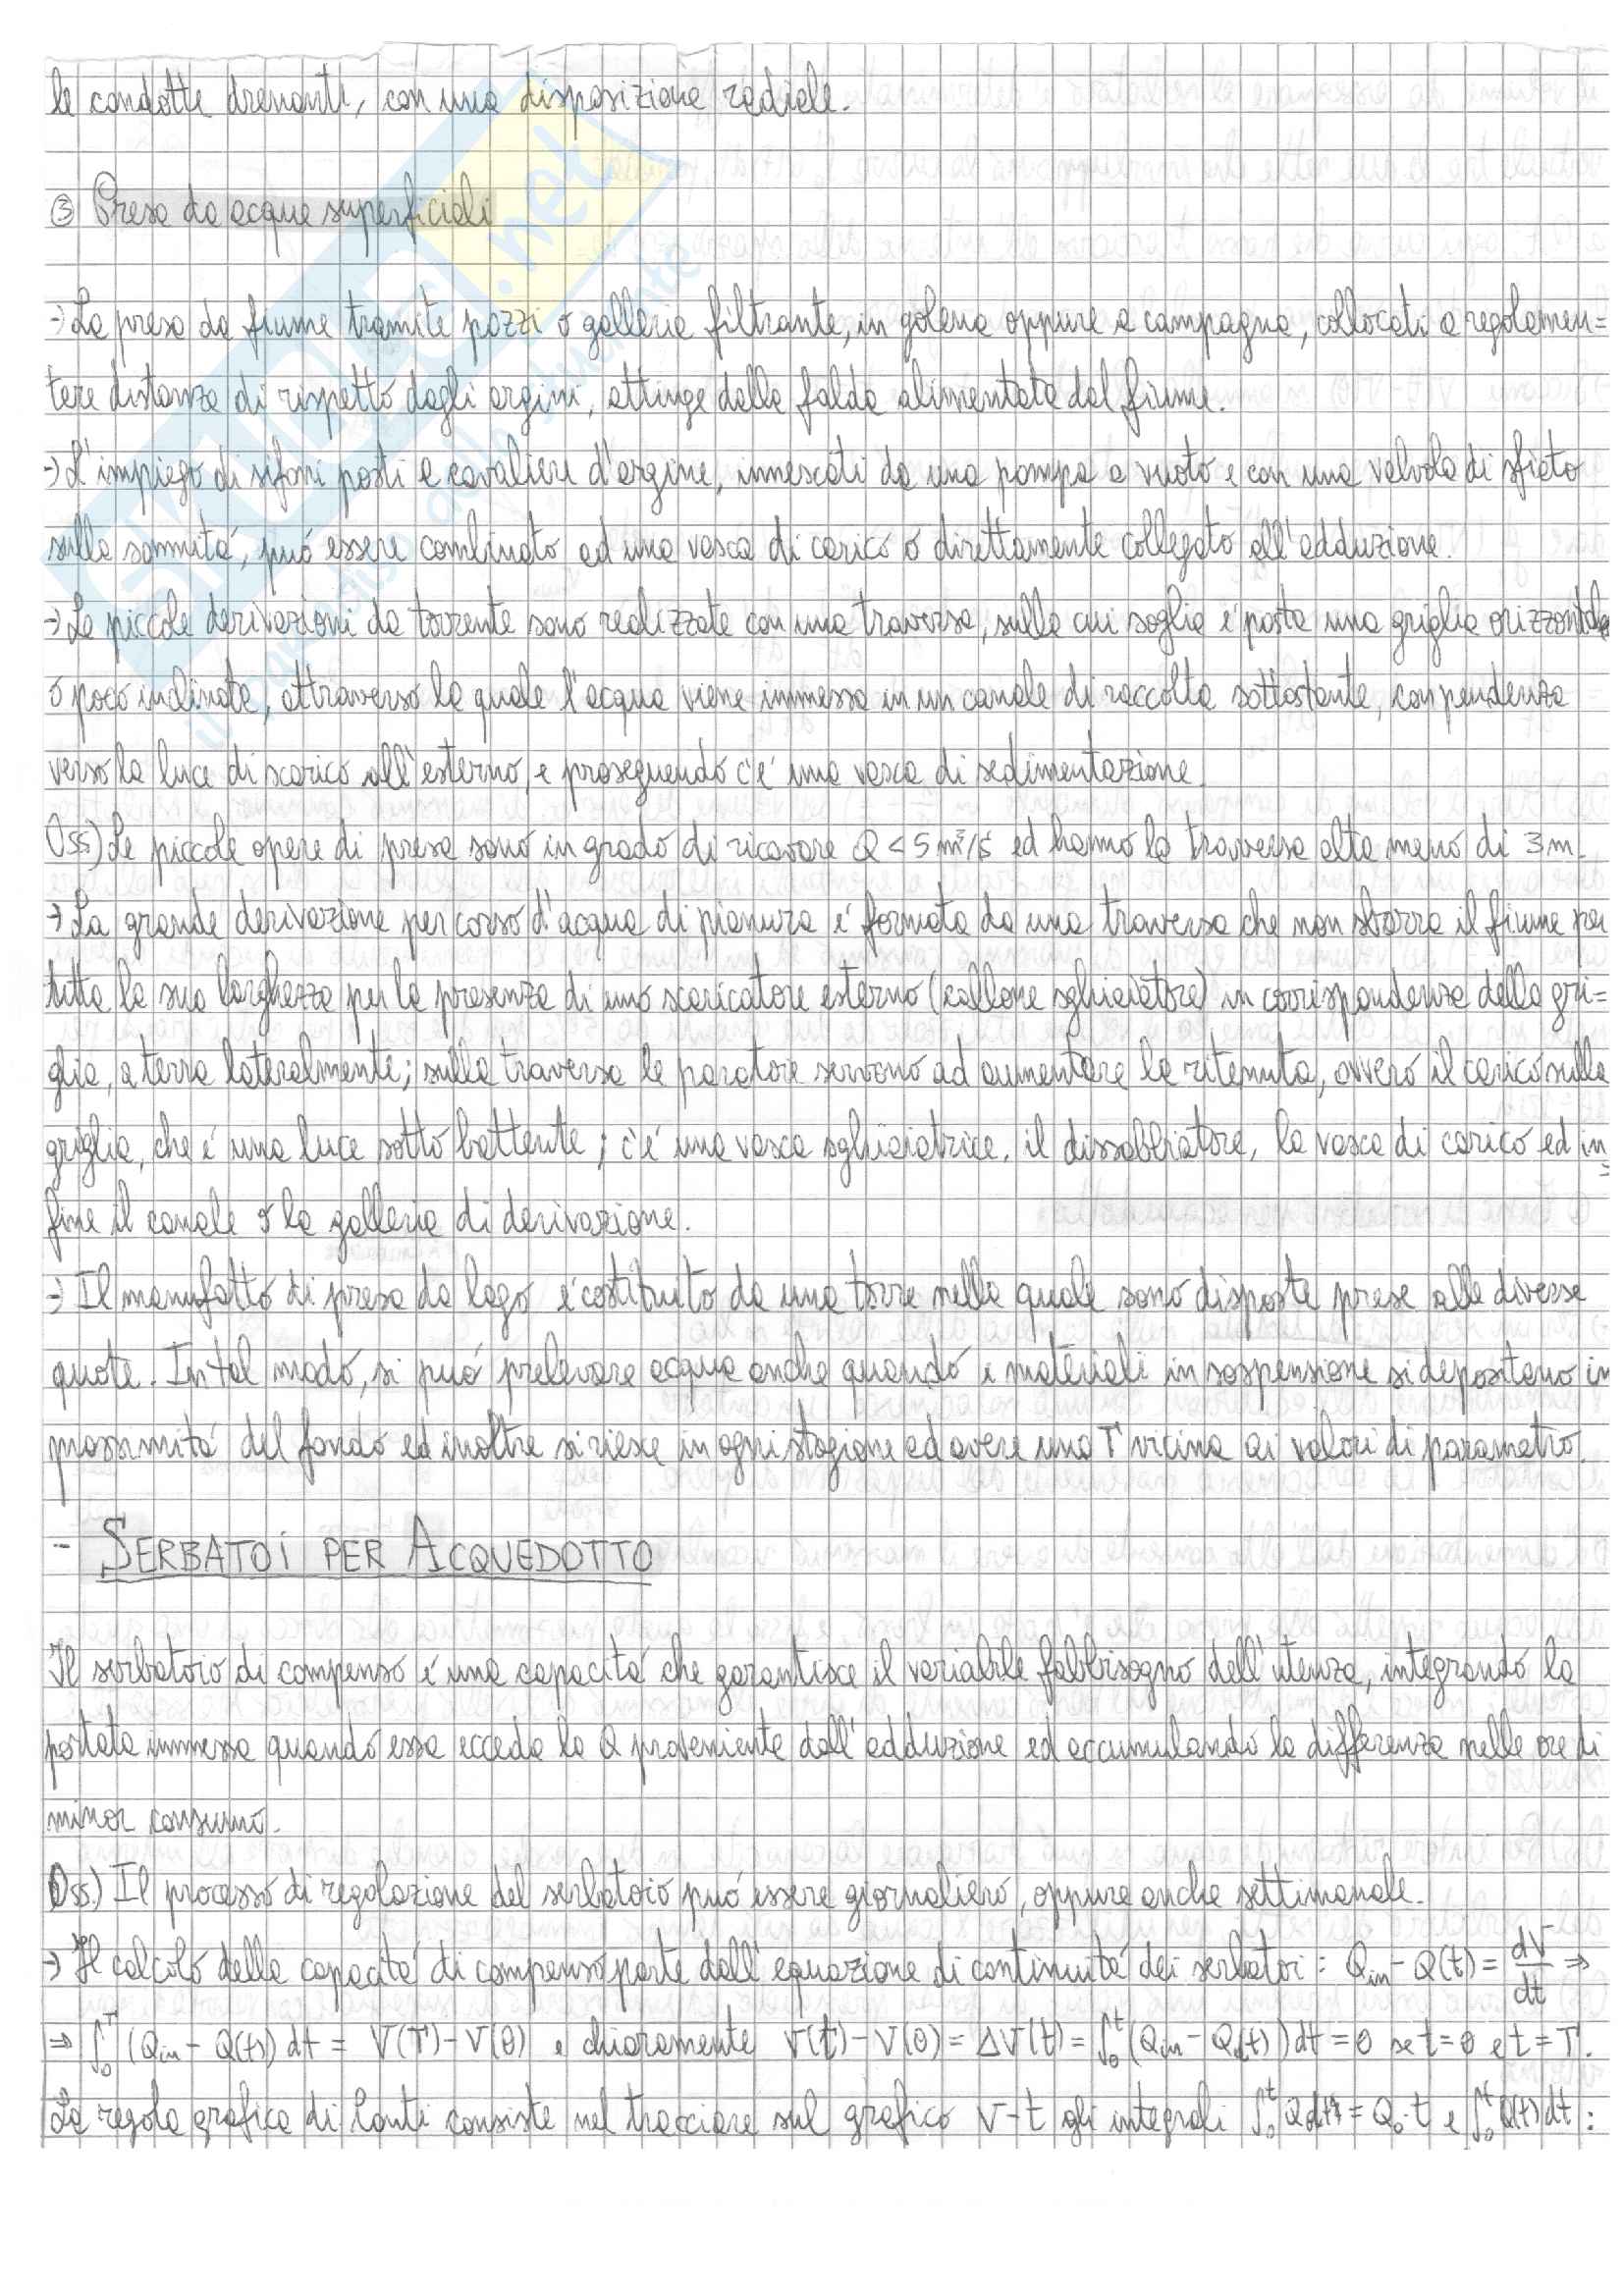 le condotte drenanti, con una disposizione radiale.
③ Presa da acque superficiali
→ La presa da fiume tramite pozzi o galleria filtrante, in golena oppure a campagna, collocati a regolamen=
tare distanza di rispetto dagli argini, attinge dalla falda alimentata dal fiume.
→ L'impiego di sifoni posti a cavaliere d'argine, innescati da una pompa a vuoto e con una valvola di sfiato
sulla sommitá, puó essere combinato ad una vasca di carico o direttamente collegato all'adduzione.
→ Le piccole derivazioni da torrente sono realizzate con una traversa, sulla cui soglia é posta una griglia orizzontale
o poco inclinata, attraverso la quale l'acqua viene immessa in un canale di raccolta sottostante, con pendenza
verso la luce di scarico all'esterno, e proseguendo c'é una vasca di sedimentazione.
Oss.) Le piccole opere di presa sono in grado di ricavare Q < 5 m³/s ed hanno la traversa alta meno di 3 m.
→ La grande derivazione per corso d'acqua di pianura é formata da una traversa che non sbarra il fiume per
tutta la sua larghezza per la presenza di uno scaricatore esterno (callone sghiaiatore) in corrispondenza della gri=
glia, a terra lateralmente; sulla traversa le paratoie servono ad aumentare la ritenuta, ovvero il carico sulla
griglia, che é una luce sotto battente; c'é una vasca sghiaiatrice, il dissabbiatore, la vasca di carico ed in=
fine il canale o la galleria di derivazione.
→ Il manufatto di presa da lago é costituito da una torre nella quale sono disposte prese alle diverse
quote. In tal modo, si puó prelevare acqua anche quando i materiali in sospensione si depositano in
prossimitá del fondo ed inoltre si riesce in ogni stagione ad avere una T vicina ai valori di parametro.
- SERBATOI PER ACQUEDOTTO
Il serbatoio di compenso é una capacitá che garantisce il variabile fabbisogno dell'utenza, integrando la
portata immessa quando essa eccede la Q proveniente dall'adduzione ed accumulando la differenza nelle ore di
minor consumo.
Oss.) Il processo di regolazione del serbatoio puó essere giornaliero, oppure anche settimanale.
→ Il calcolo della capacitá di compenso parte dall'equazione di continuitá dei serbatoi: Qin - Q(t) = dV/dt ⇒
⇒ ∫₀ᵀ (Qin - Q(t)) dt = V(T) - V(0) e chiaramente V(t) - V(0) = ΔV(t) = ∫₀ᵗ (Qin - Q(t)) dt = 0 se t=0 e t=T.
La regola grafica di Conti consiste nel tracciare sul grafico V-t gli integrali ∫₀ᵗ Q dt = Q₀·t e ∫₀ᵗ Q(t) dt :
SKUOLA.net